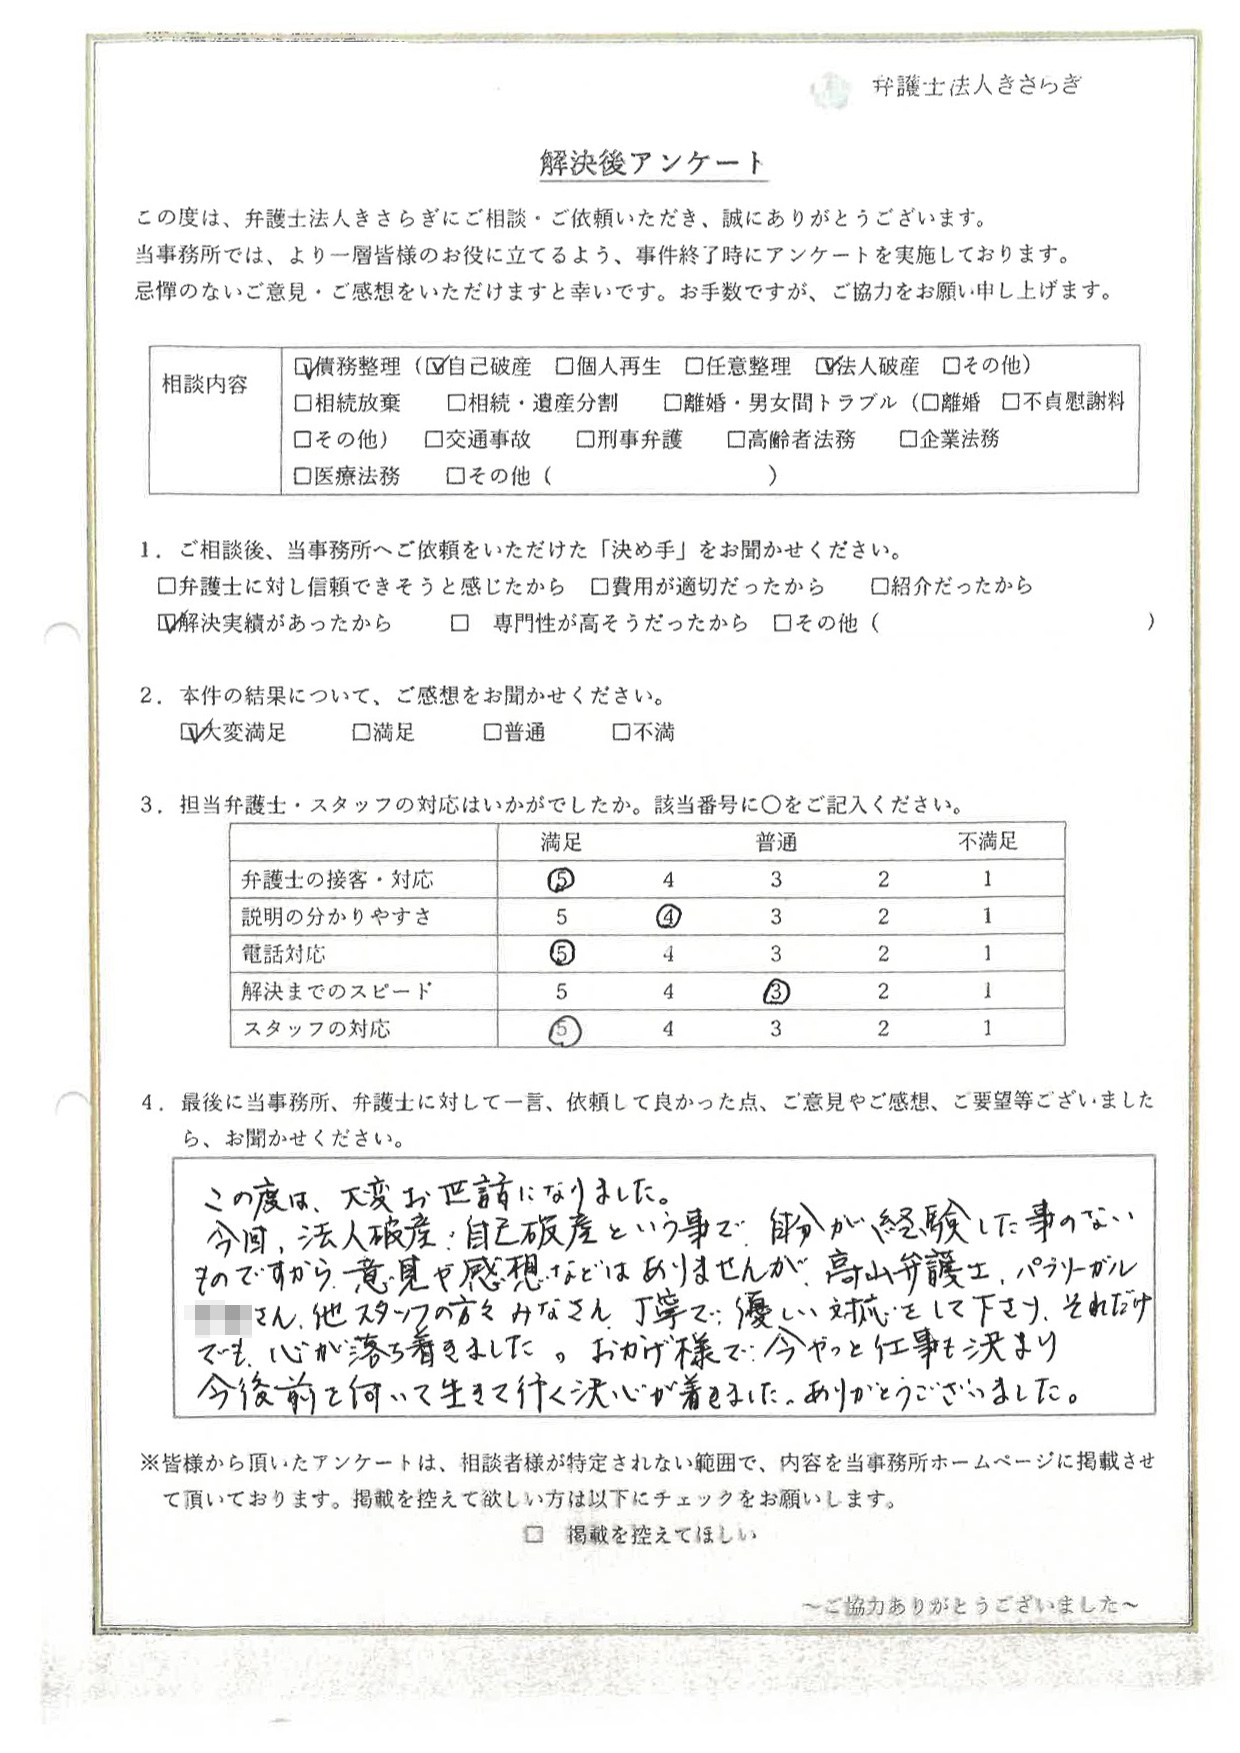 弁護士法人きさらぎ
解決後アンケート
この度は、弁護士法人きさらぎにご相談・ご依頼いただき、誠にありがとうございます。
当事務所では、より一層皆様のお役に立てるよう、事件終了時にアンケートを実施しております。
忌憚のないご意見・ご感想をいただけますと幸いです。お手数ですが、ご協力をお願い申し上げます。
相談内容
☑債務整理（☑自己破産 □個人再生 □任意整理 ☑法人破産 □その他）
□相続放棄 □相続・遺産分割 □離婚・男女間トラブル（□離婚 □不貞慰謝料
□その他） □交通事故 □刑事弁護 □高齢者法務 □企業法務
□医療法務 □その他（ ）
1．ご相談後、当事務所へご依頼をいただけた「決め手」をお聞かせください。
□弁護士に対し信頼できそうと感じたから □費用が適切だったから □紹介だったから
☑解決実績があったから □ 専門性が高そうだったから □その他（ ）
2．本件の結果について、ご感想をお聞かせください。
☑大変満足 □満足 □普通 □不満
3．担当弁護士・スタッフの対応はいかがでしたか。該当番号に○をご記入ください。
満足 普通 不満足
弁護士の接客・対応 ⑤ 4 3 2 1
説明の分かりやすさ 5 ④ 3 2 1
電話対応 ⑤ 4 3 2 1
解決までのスピード 5 4 ③ 2 1
スタッフの対応 ⑤ 4 3 2 1
4．最後に当事務所、弁護士に対して一言、依頼して良かった点、ご意見やご感想、ご要望等ございました
ら、お聞かせください。
この度は、大変お世話になりました。
今回、法人破産・自己破産という事で、自分が経験した事のない
ものですから、意見や感想などはありませんが、高山弁護士、パラリーガル
さん、他スタッフの方々みなさん、丁寧で優しい対応をして下さり、それだけ
でも、心が落ち着きました。おかげ様で今やっと仕事も決まり
今後前を向いて生きて行く決心が着きました。ありがとうございました。
※皆様から頂いたアンケートは、相談者様が特定されない範囲で、内容を当事務所ホームページに掲載させ
て頂いております。掲載を控えて欲しい方は以下にチェックをお願いします。
□ 掲載を控えてほしい
～ご協力ありがとうございました～